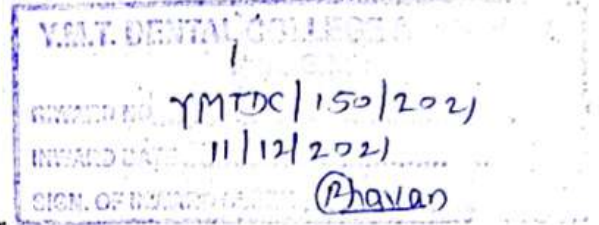 Y.M.T. DENTAL COLLEGE
INWARD NO. YMTDC/150/2021
INWARD DATE 11/12/2021
SIGN. OF INWARD Bhavan